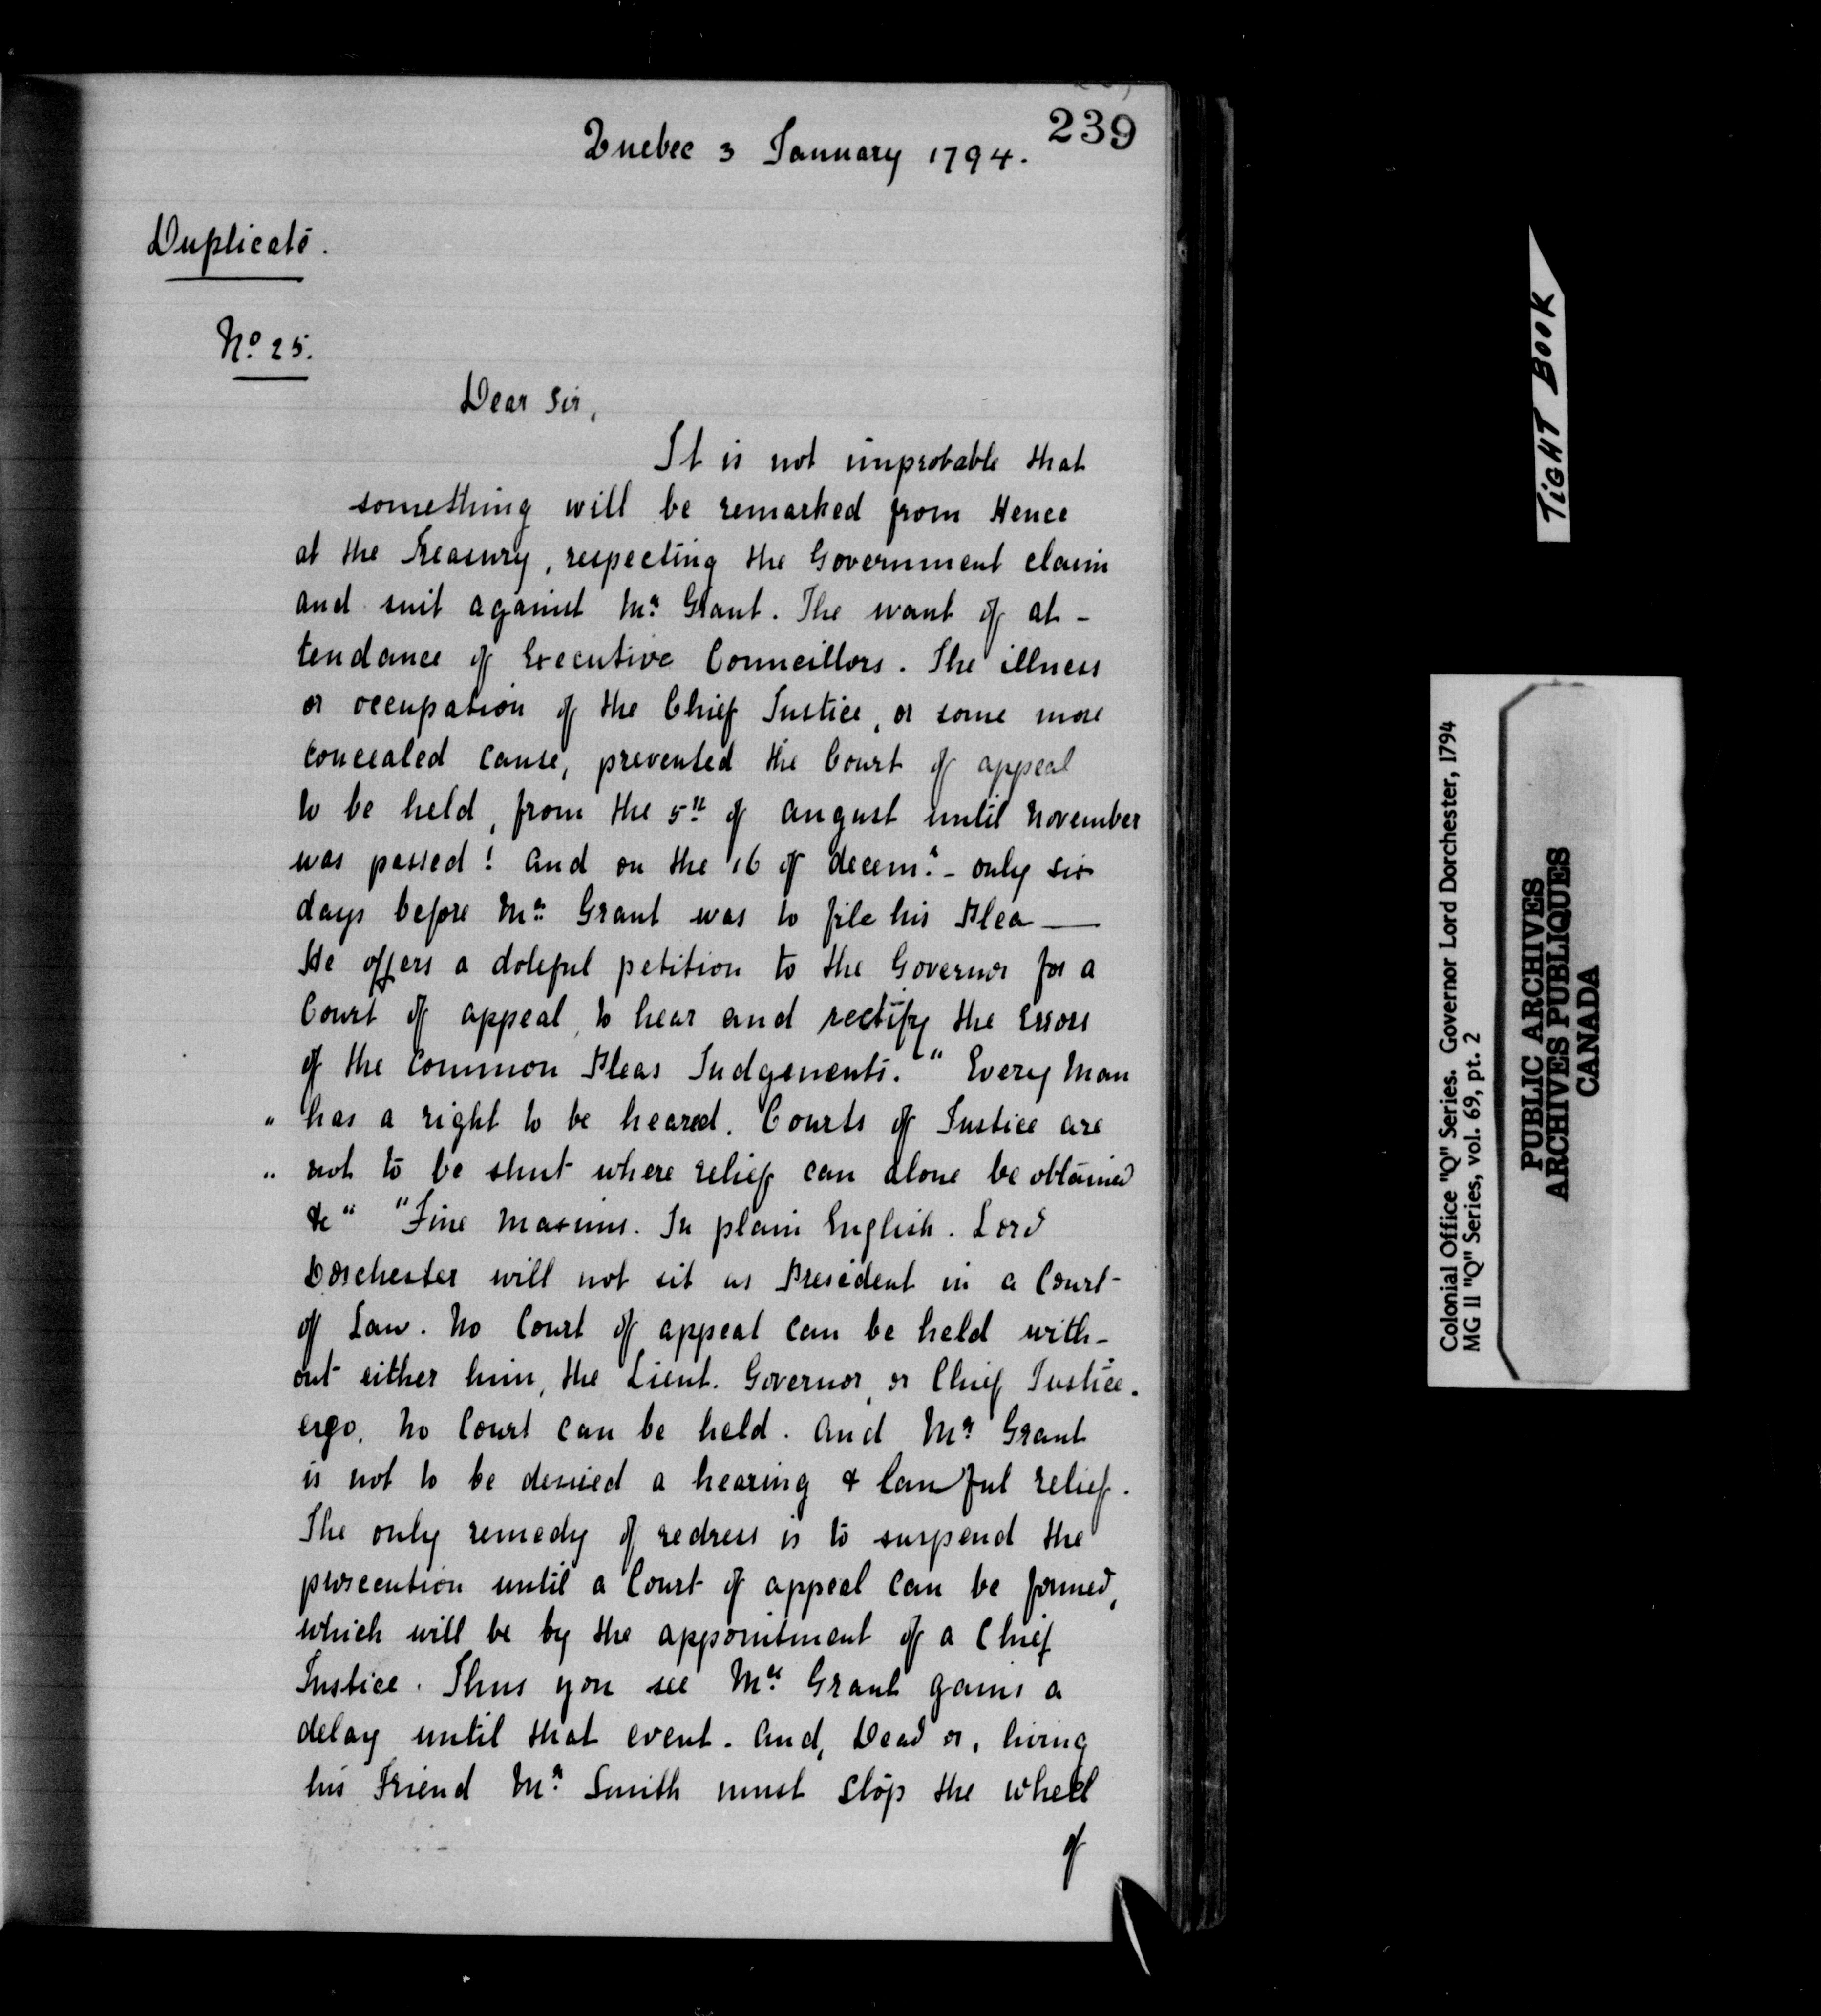 239
Quebec 3 January 1794.
Duplicate.
No. 25.
Dear Sir,
It is not improbable that
something will be remarked from Hence
at the Treasury, respecting the Government claim
and suit against Mr. Grant. The want of at-
tendance of Executive Councillors. The illness
or occupation of the Chief Justice, or some more
concealed cause, prevented the Court of appeal
to be held, from the 5th of august until november
was passed! and on the 16 of decemr. - only six
days before Mr. Grant was to file his Plea —
He offers a doleful petition to the Governor for a
Court of appeal, to hear and rectify the Errors
of the Common Pleas Judgements. " Every Man
" has a right to be heared. Courts of Justice are
" not to be shut where relief can alone be obtained
&c " "Fine Maxims. In plain English. Lord
Dorchester will not sit as President in a Court
of Law. No Court of appeal can be held with-
out either him, the Lieut. Governor, or Chief Justice.
ergo, no Court can be held. and Mr. Grant
is not to be denied a hearing & lawful relief.
The only remedy of redress is to suspend the
prosecution until a Court of appeal can be formed,
which will be by the appointment of a Chief
Justice. Thus you see Mr. Grant gains a
delay until that event. and, Dead or, living
his Friend Mr. Smith must stop the wheel
of
TIGHT BOOK
Colonial Office "Q" Series. Governor Lord Dorchester, 1794
MG 11 "Q" Series, vol. 69, pt. 2
PUBLIC ARCHIVES
ARCHIVES PUBLIQUES
CANADA